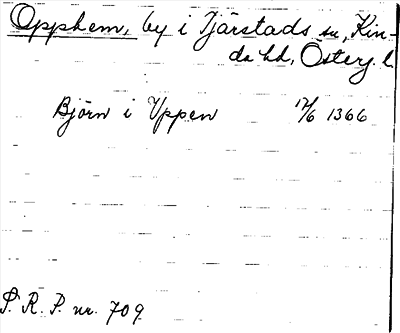 Opphem, by i Tjärstads sn, Kin-
da hd, Österg. l.
Björn i Uppen 17/6 1366
P. R. P. nr. 709